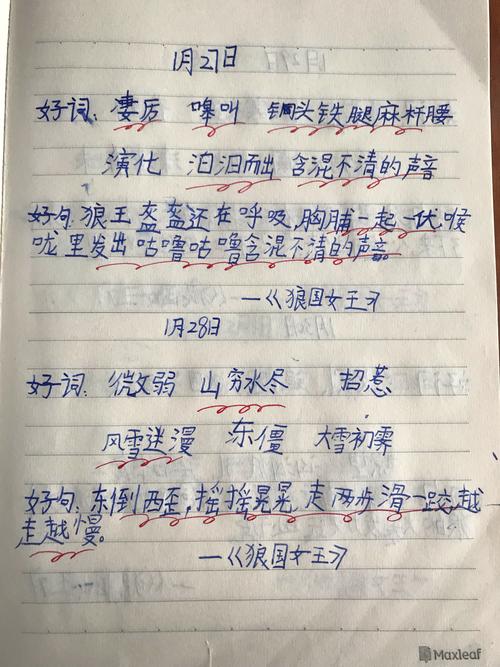 1月27日
好词：凄厉 嗥叫 铜头铁腿麻杆腰
演化 汩汩而出 含混不清的声音
好句：狼王盔盔还在呼吸，胸脯一起一伏，喉
咙里发出咕噜咕噜含混不清的声音。
——《狼国女王》
1月28日
好词：微弱 山穷水尽 招惹
风雪迷漫 东僵 大雪初霁
好句：东倒西歪，摇摇晃晃，走两步滑一跤越
走越慢。
——《狼国女王》
Maxleaf